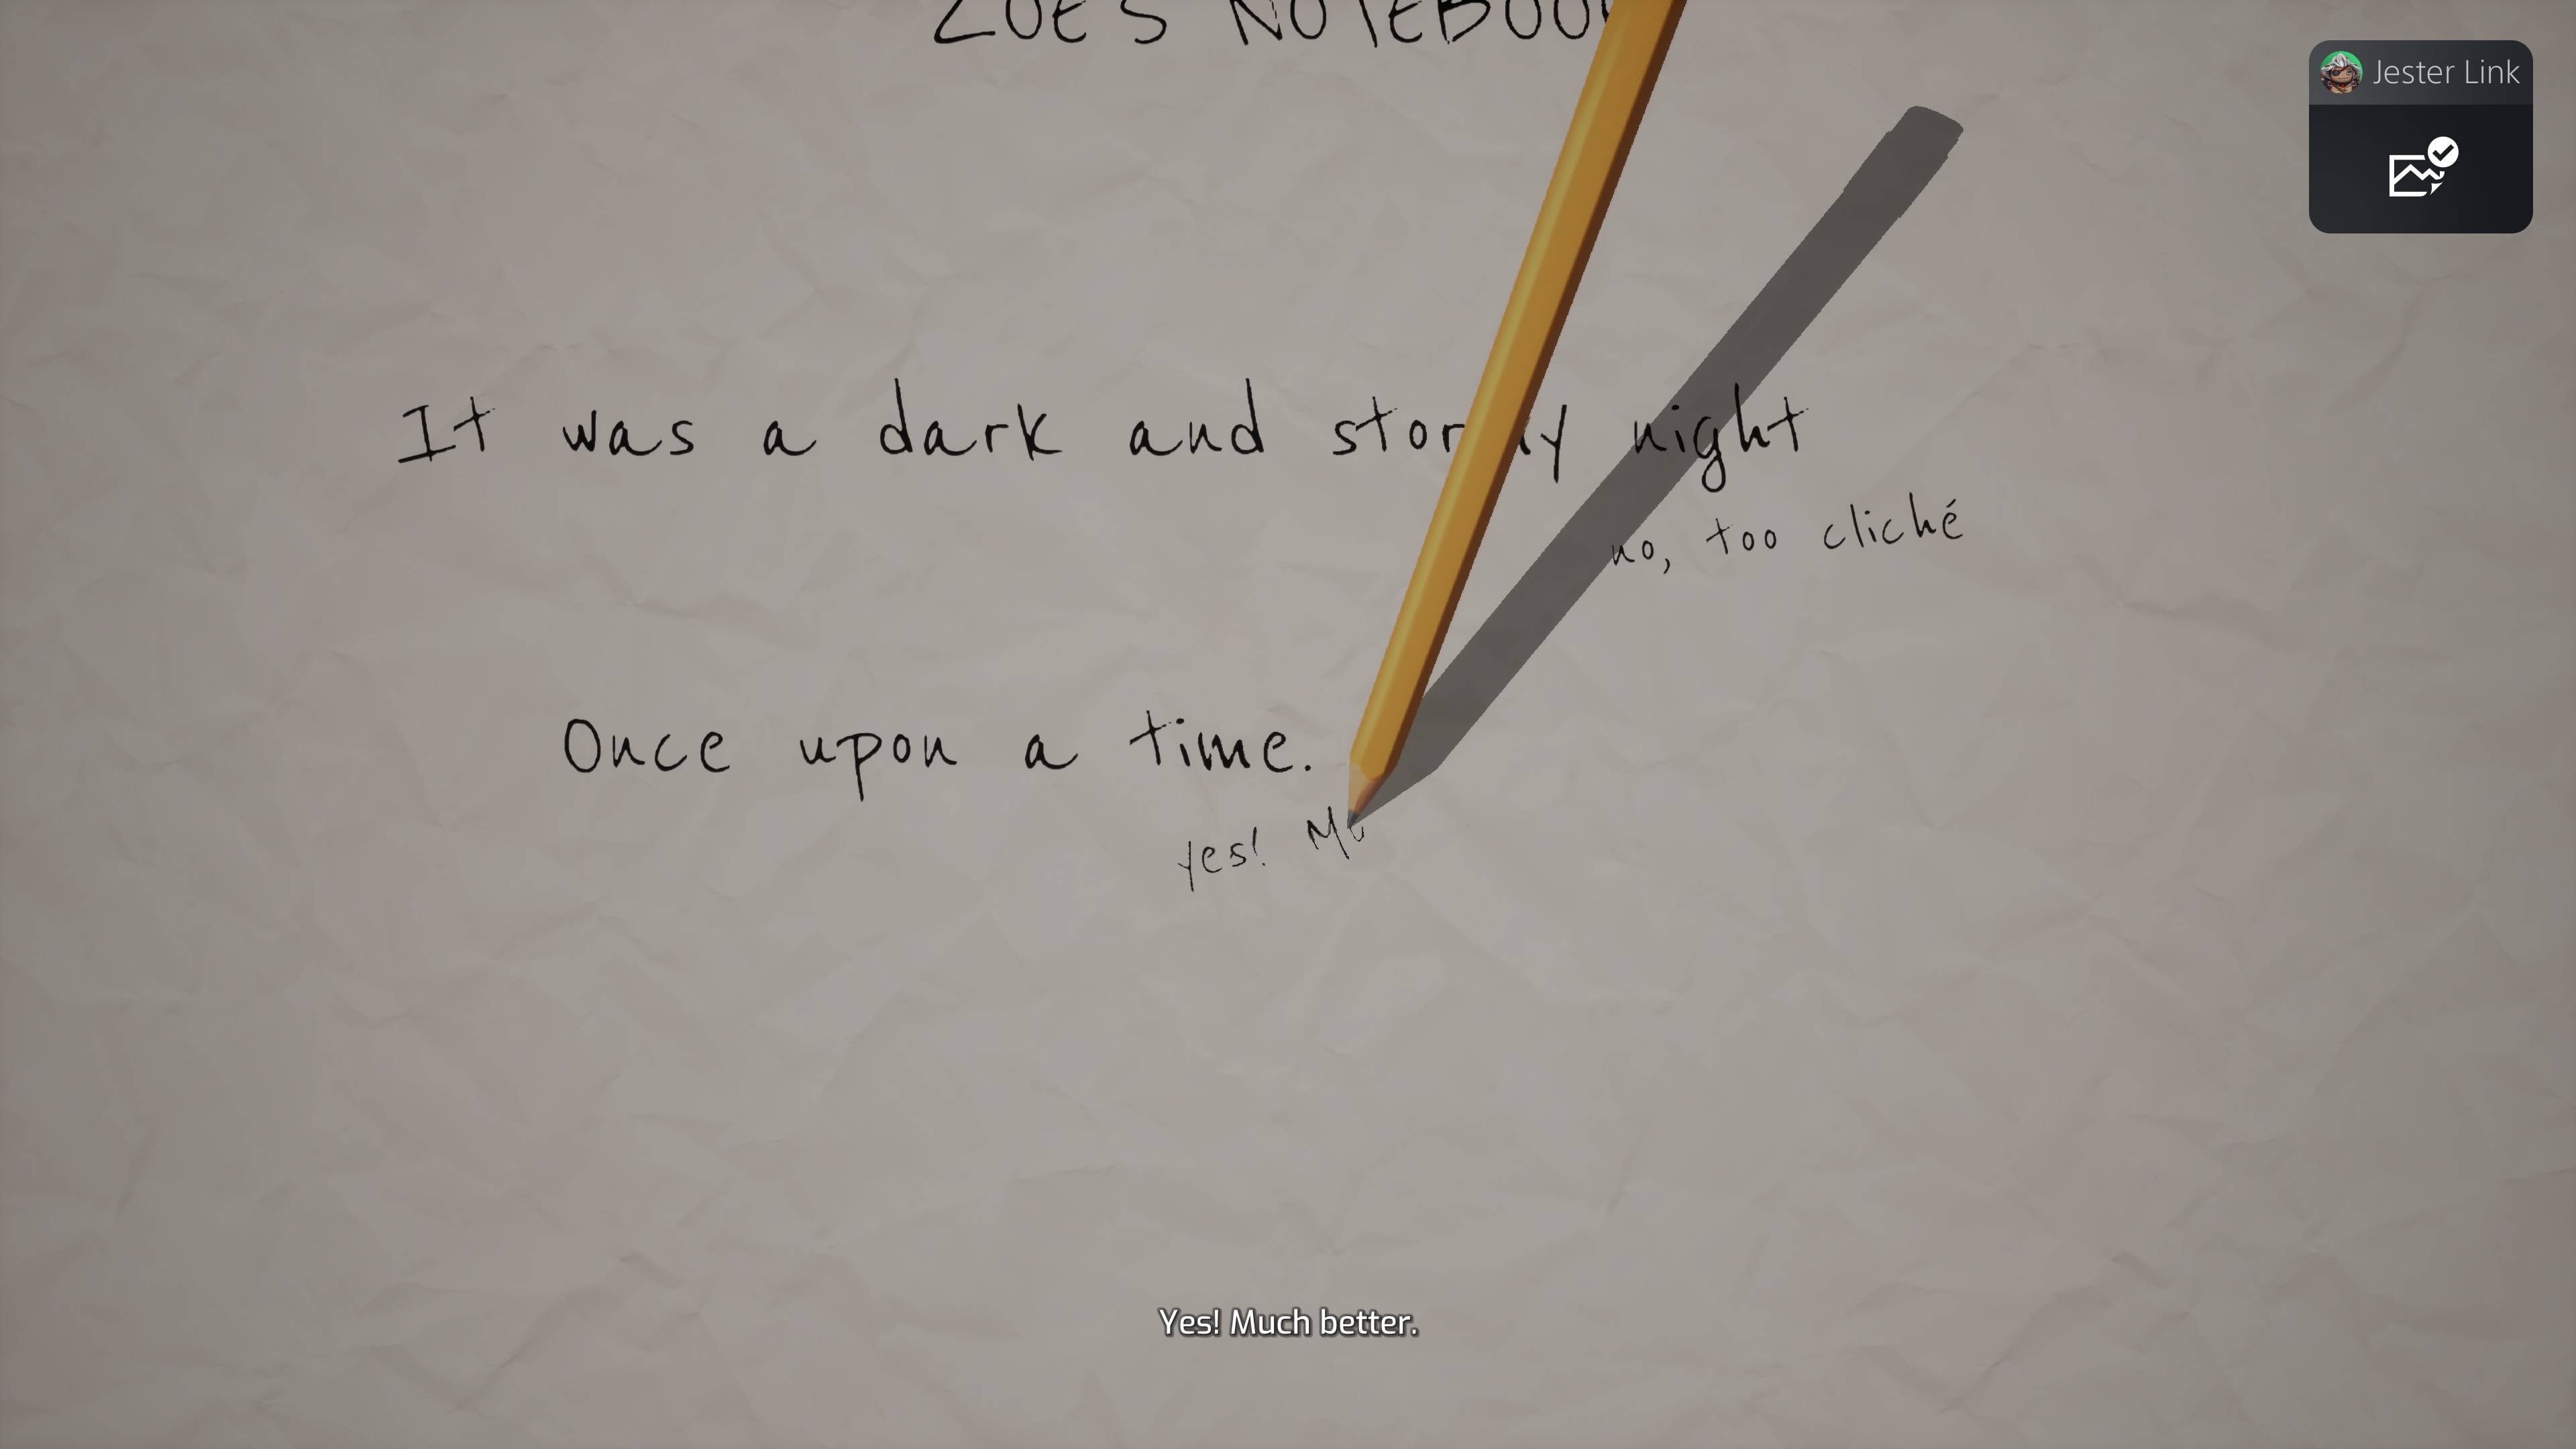 ZOE'S NOTEBOO
Jester Link
It was a dark and stormy night
no, too cliché
Once upon a time.
yes! Mu
Yes! Much better.